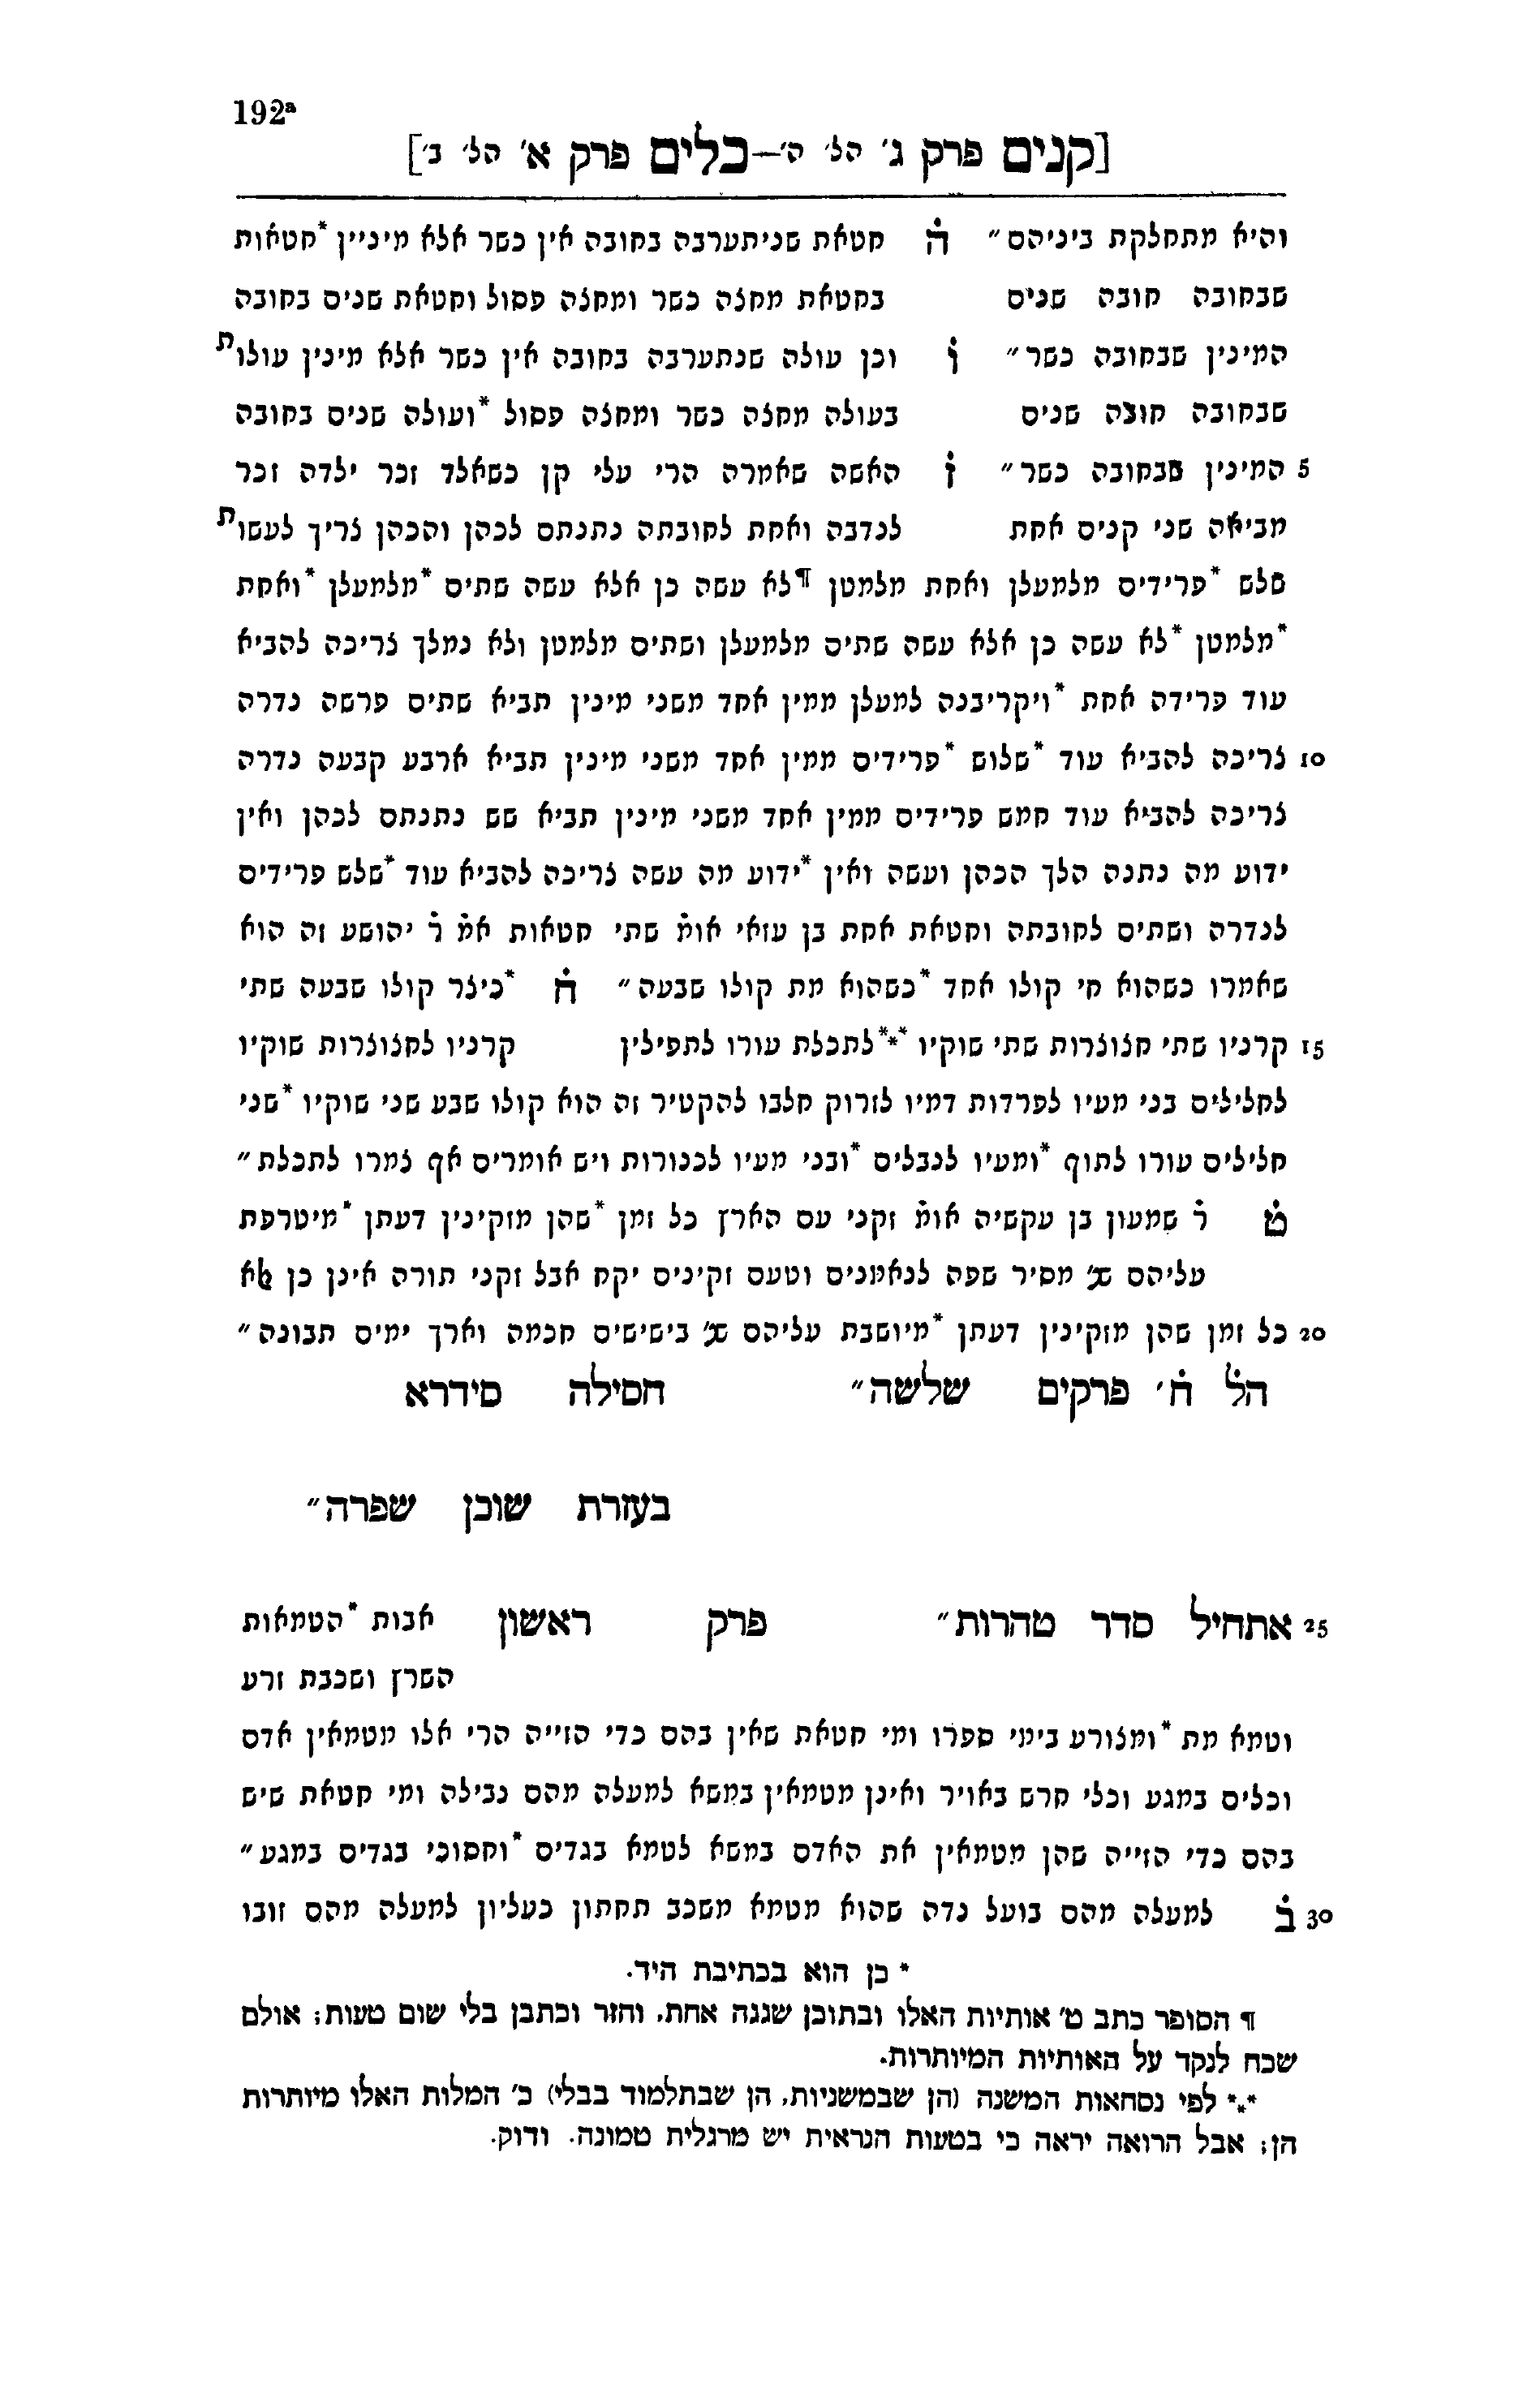 192ª
[קנים פרק ג׳ הל׳ ה׳—כלים פרק א׳ הל׳ ב׳]
והיא מתחלקת ביניהם״ ה̇ חטאת שניתערבה בחובה אין כשר אלא מיניין *חטאות
שבחובה חובה שנים בחטאת מחצה כשר ומחצה פסול וחטאת שנים בחובה
המינין שבחובה כשר״ ו̇ וכן עולה שנתערבה בחובה אין כשר אלא מינין עולות
שבחובה חובה שנים בעולה מחצה כשר ומחצה פסול *ועולה שנים בחובה
5 המינין שבחובה כשר״ ז̇ האשה שאמרה הרי עלי קן כשאלד זכר ילדה זכר
מביאה שני קנים אחת לנדבה ואחת לחובתה נתנתם לכהן והכהן צריך לעשות
שלש *פרידים מלמעלן ואחת מלמטן ¶לא עשה כן אלא עשה שתים *מלמעלן *ואחת
*מלמטן *לא עשה כן אלא עשה שתים מלמעלן ושתים מלמטן ולא נמלך צריכה להביא
עוד פרידה אחת *ויקריבנה למעלן ממין אחד משני מינין תביא שתים פרשה נדרה
10 צריכה להביא עוד *שלוש *פרידים ממין אחד משני מינין תביא ארבע קבעה נדרה
צריכה להביא עוד חמש פרידים ממין אחד משני מינין תביא שש נתנתם לכהן ואין
ידוע מה נתנה הלך הכהן ועשה ואין *ידוע מה עשה צריכה להביא עוד *שלש פרידים
לנדרה ושתים לחובתה וחטאת אחת בן עזאי אומ̇ שתי חטאות אמ̇ ר̇ יהושע זה הוא
שאמרו כשהוא חי קולו אחד *כשהוא מת קולו שבעה״ ח̇ *כיצר קולו שבעה שתי
15 קרניו שתי חצוצרות שתי שוקיו *⁎*לתכלת עורו לתפילין קרניו לחצוצרות שוקיו
לחלילים בני מעיו לפרדות דמיו לזרוק חלבו להקטיר זה הוא קולו שבע שני שוקיו *שני
חלילים עורו לתוף *ומעיו לנבלים *ובני מעיו לכנורות ויש אומרים אף צמרו לתכלת״
ט̇ ר̇ שמעון בן עקשיה אומ̇ זקני עם הארץ כל זמן *שהן מזקינין דעתן *מיטרפת
עליהם שנ׳ מסיר שפה לנאמנים וטעם זקינים יקח אבל זקני תורה אינן כן אלא
20 כל זמן שהן מזקינין דעתן *מיושבת עליהם שנ׳ בישישים חכמה וארך ימים תבונה״
הל̇ ח̇׳ פרקים שלשה״ חסילה סידרא
בעזרת שוכן שפרה״
25 אתחיל סדר טהרות״ פרק ראשון אבות *הטמאות
השרץ ושכבת זרע
וטמא מת *ומצורע בימי ספרו ומי חטאת שאין בהם כדי הזייה הרי אלו מטמאין אדם
וכלים במגע וכלי חרש באויר ואינן מטמאין במשא למעלה מהם נבילה ומי חטאת שיש
בהם כדי הזייה שהן מטמאין את האדם במשא לטמא בגדים *וחסוכי בגדים במגע״
30 ב̇ למעלה מהם בועל נדה שהוא מטמא משכב תחתון כעליון למעלה מהם זובו
* כן הוא בכתיבת היד.
¶ הסופר כתב ט׳ אותיות האלו ובתוכן שגגה אחת, וחזר וכתבן בלי שום טעות; אולם
שכח לנקד על האותיות המיותרות.
*⁎* לפי נסחאות המשנה (הן שבמשניות, הן שבתלמוד בבלי) כ׳ המלות האלו מיותרות
הן; אבל הרואה יראה כי בטעות הנראית יש מרגלית טמונה. ודוק.